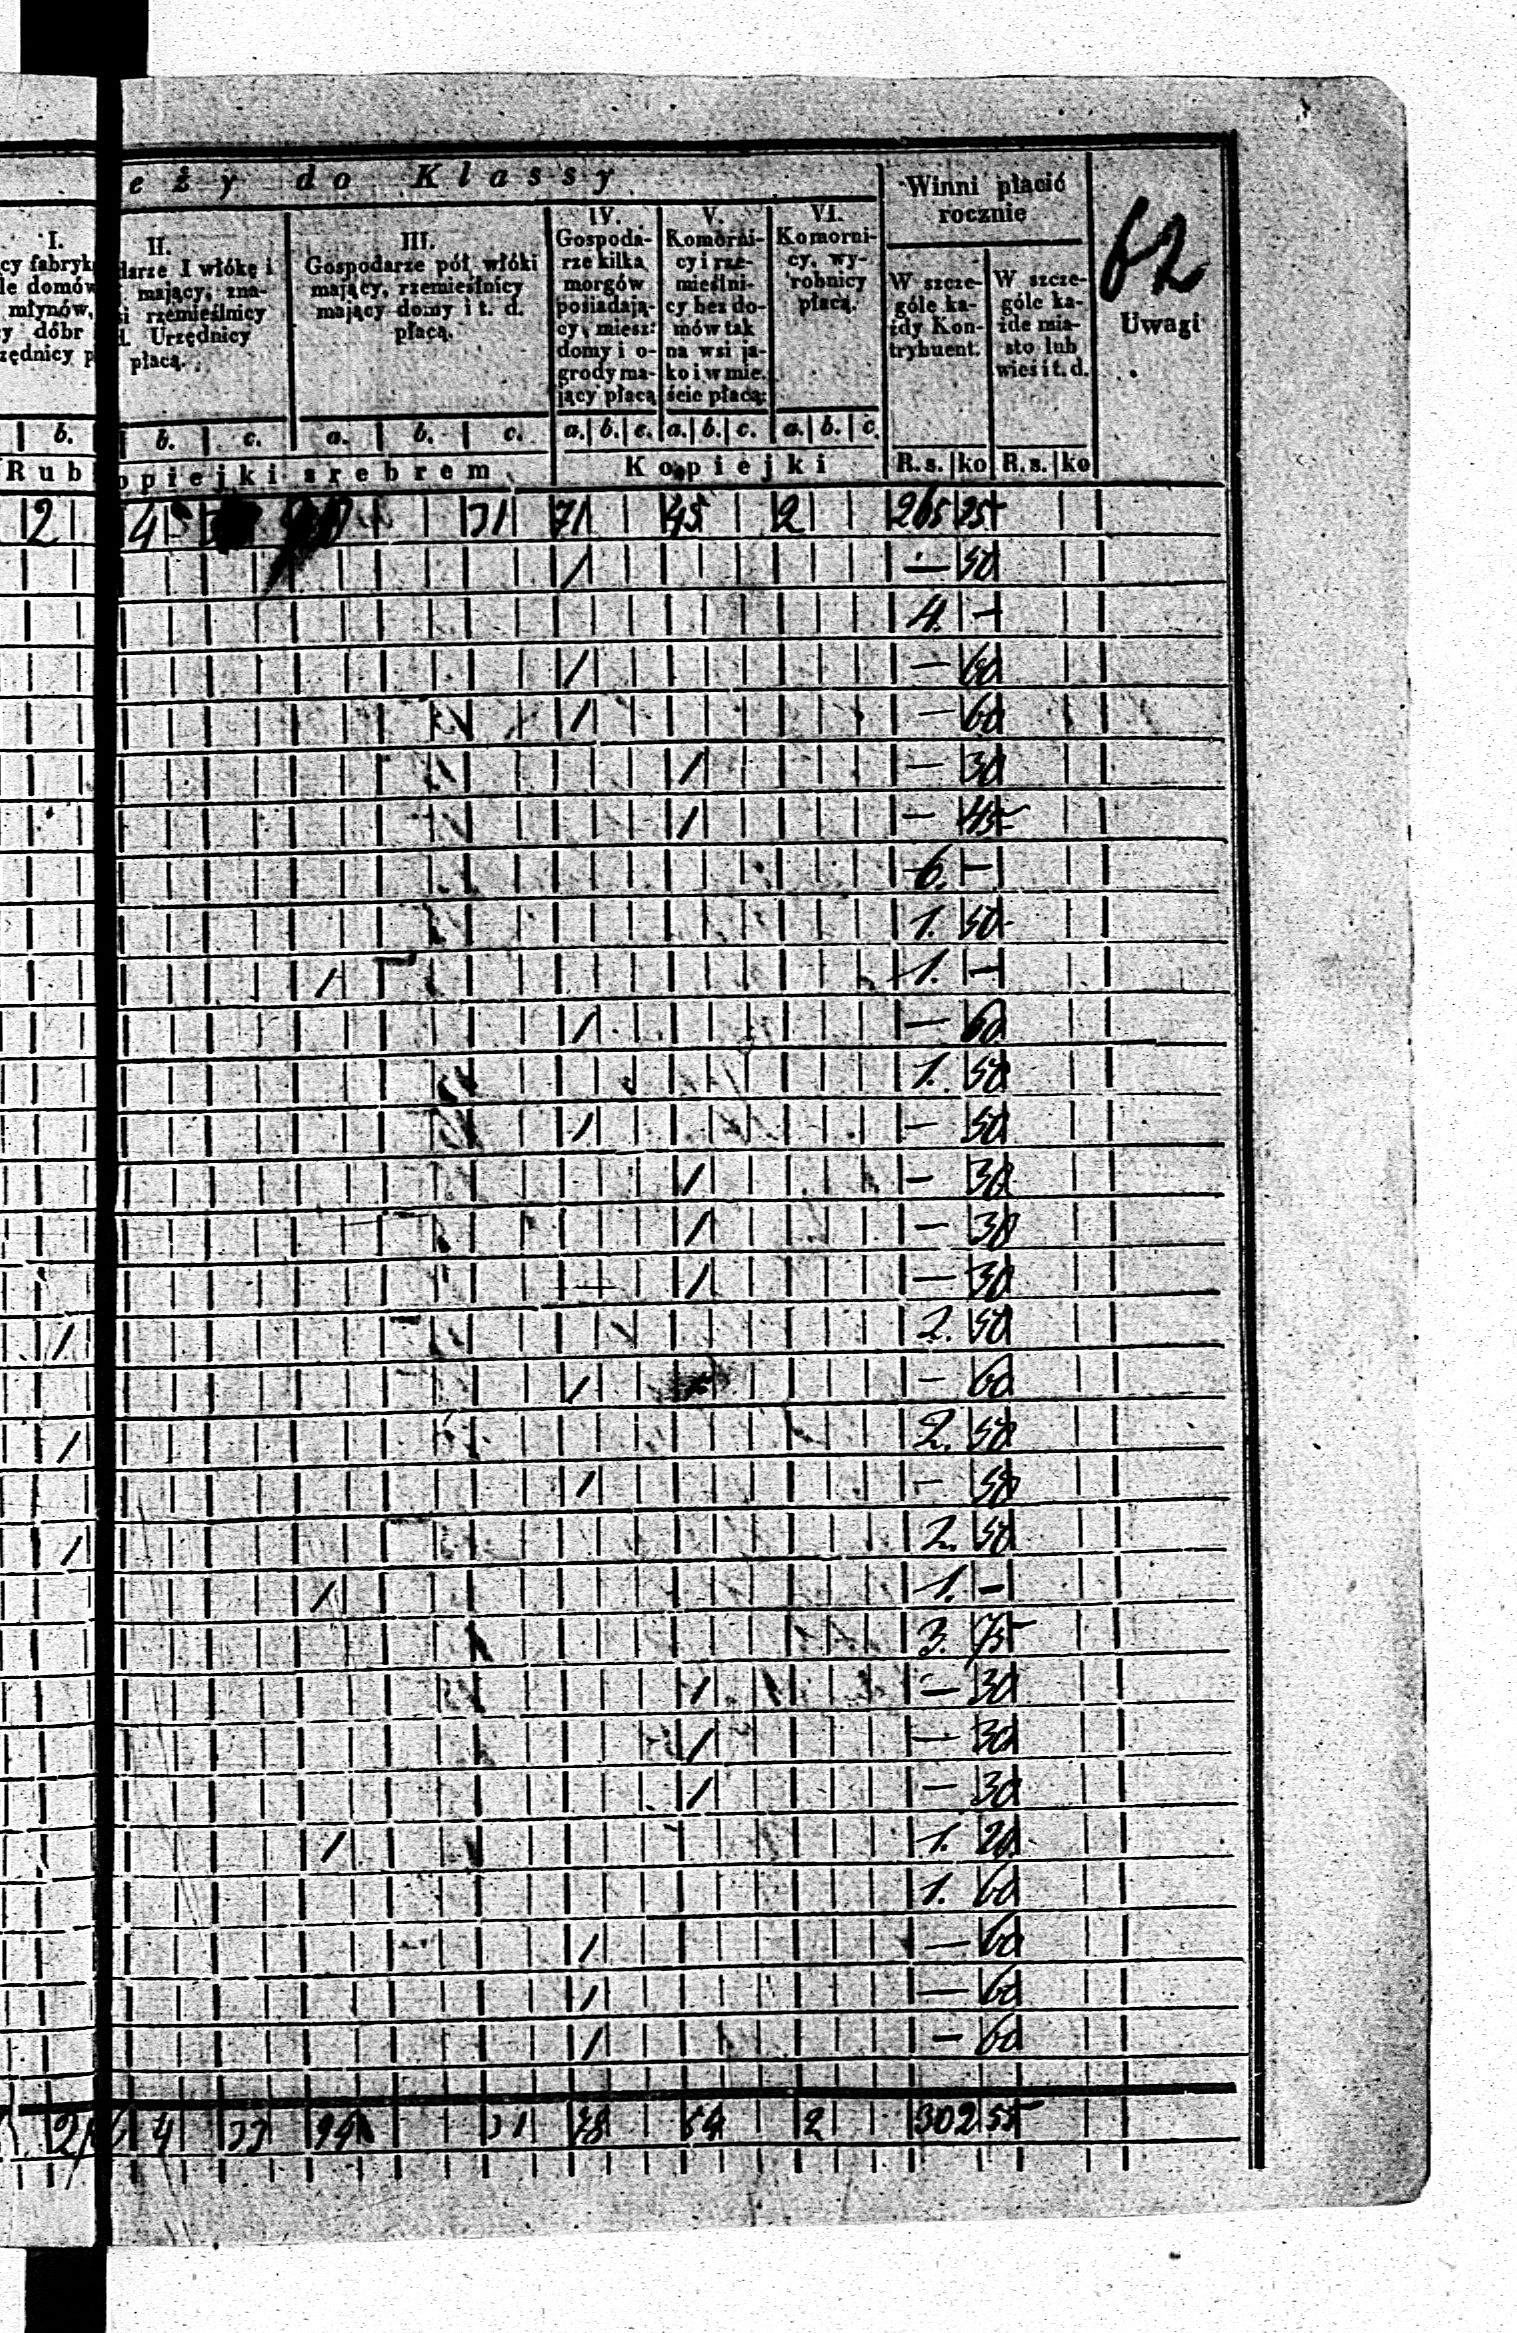 eży do Klassy
Winni płacić
rocznie
62
Uwagi
I.
cy fabryk
le domów
młynów,
y dóbr
zędnicy p
II.
darze I włókę i
mający, zna-
i rzemieślnicy
d. Urzędnicy
płacą.
III.
Gospodarze pół włóki
mający, rzemieślnicy
mający domy i t. d.
płacą.
IV.
Gospoda-
rze kilka
morgów
posiadają-
cy, miesz:
domy i o-
grody ma-
jący płacą
V.
Komorni-
cy i rze-
mieślni-
cy bez do-
mów tak
na wsi ja-
ko i w mie.
ście płacą:
VI.
Komorni-
cy, wy-
robnicy
płacą.
W szcze-
góle ka-
żdy Kon-
trybuent.
W szcze-
góle ka-
żde mia-
sto lub
wieś i t. d.
b. b. c. a. b. c. a. b. c. a. b. c. a. b. c.
Rub opiejki srebrem Kopiejki R.s. ko R.s. ko
2 4 31 71 45 2 265 25
1 — 50
4. —
1 — 60
1 — 60
1 — 30
1 — 45
6. —
1. 50
1 1. —
1 — 60
1. 50
1 — 50
1 — 30
1 — 30
1 — 30
1 2. 50
1 — 60
1 2. 50
1 — 50
1 2. 50
1 1. —
3. 75
1 — 30
1 — 30
1 — 30
1 1. 20
1. 60
1 — 60
1 — 60
1 — 60
4 33 94 31 78 54 2 302 55